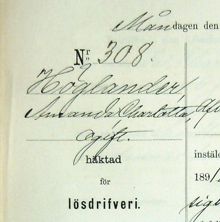 Måndagen den
Nr 308.
Höglander,
Amanda Charlotta,
ogift.
häktad
för
lösdrifveri.
instäl
189